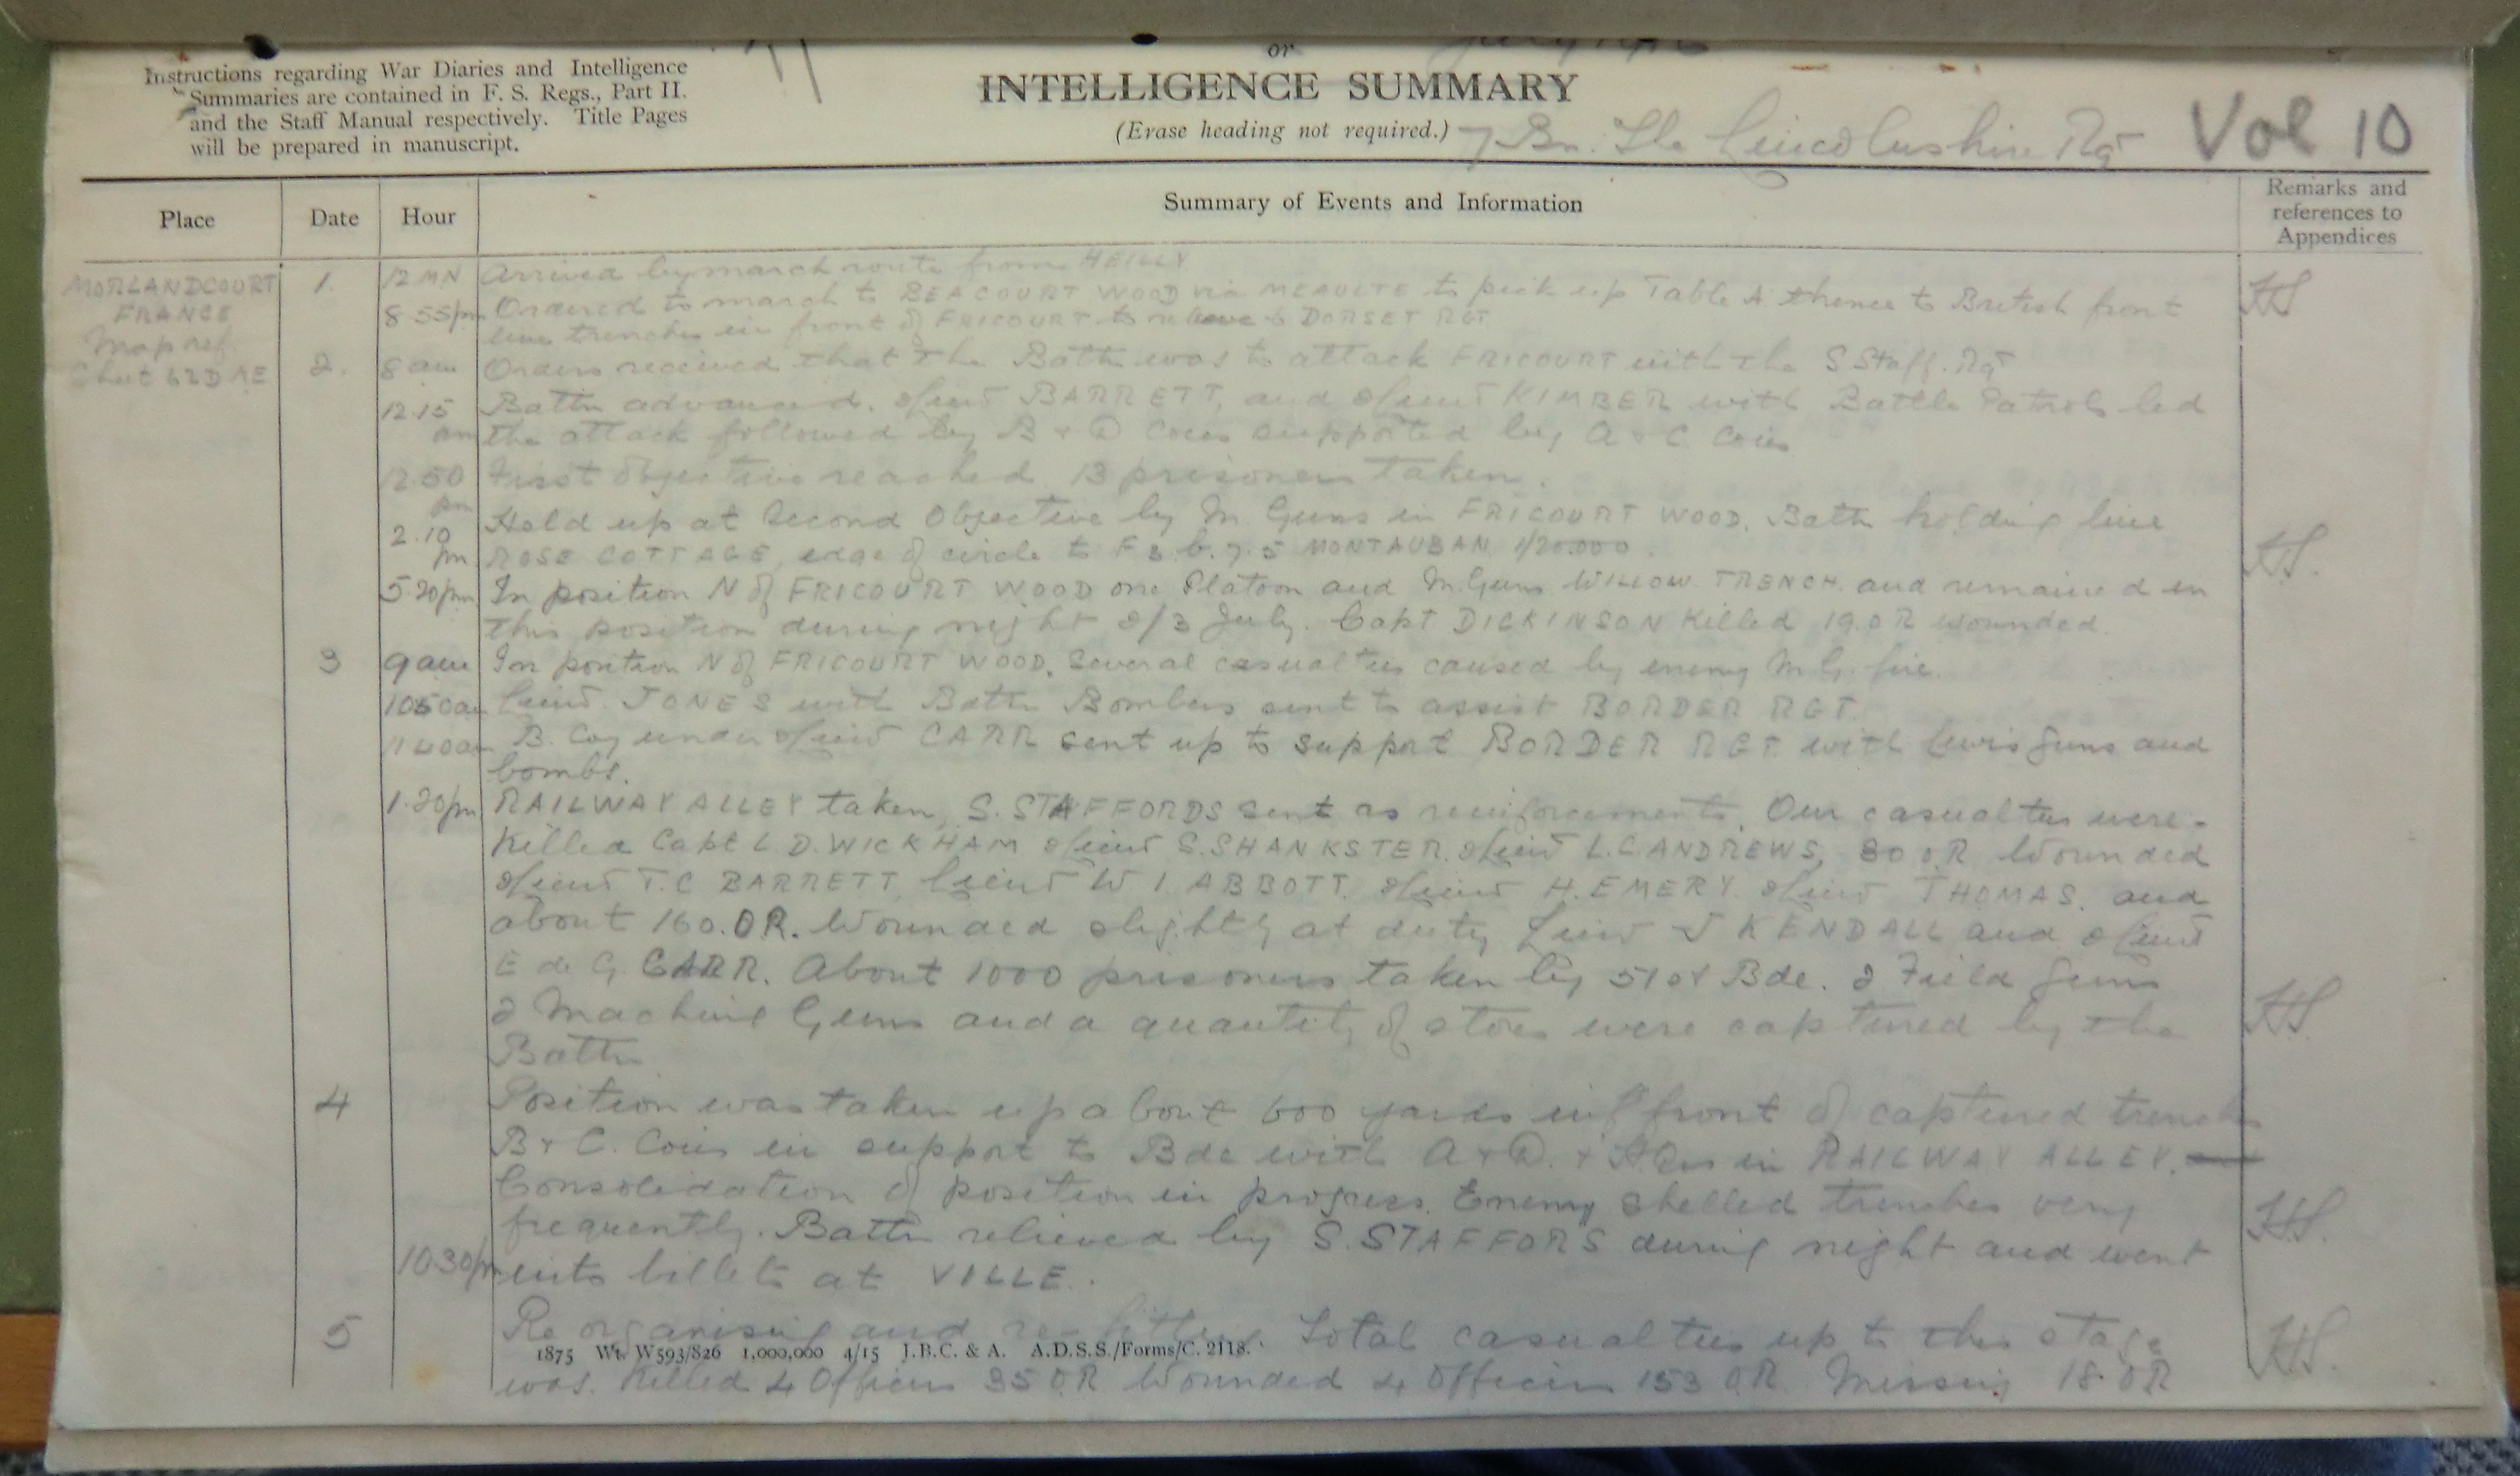 or
July 1916
Instructions regarding War Diaries and Intelligence
Summaries are contained in F. S. Regs., Part II.
and the Staff Manual respectively. Title Pages
will be prepared in manuscript.
INTELLIGENCE SUMMARY
(Erase heading not required.)
7 Bn. The Lincolnshire Rgt
Vol 10
Place Date Hour Summary of Events and Information Remarks and references to Appendices
MORLANDCOURT 1. 12 MN Arrived by march route from HEILLY
FRANCE 8.55pm Ordered to march to BEACOURT WOOD via MEAULTE to pick up Table A. thence to British front
line trenches in front of FRICOURT to relieve 6 DORSET RGT
Map ref.
Sheet 62D NE 2. 8 am Orders received that the Battn was to attack FRICOURT with the S. Staff. Rgt
12.15 Battn advanced. 2/Lieut BARRETT, and 2/Lieut KIMBER with Battle Patrols led
the attack followed by B & D Coies supported by A & C Coies
12.50 pm First Objective reached 13 prisoners taken.
2.10 pm Held up at Second Objective by M. Guns in FRICOURT WOOD. Battn holding line
ROSE COTTAGE, edge of circle to F 3. b. 7. 5 MONTAUBAN 1/20.000.
5.20pm In position N of FRICOURT WOOD one Platoon and M. Guns WILLOW TRENCH. and remained in
this position during night 2/3 July. Capt DICKINSON Killed 19. O R wounded.
3 9 am In position N of FRICOURT WOOD. Several casualties caused by enemy M.G. fire.
10.50am Lieut. JONES with Battn Bombers sent to assist BORDER RGT.
11.40am B. Coy under 2/Lieut CARR sent up to support BORDER RGT. with Lewis guns and
bombs.
1.20pm RAILWAY ALLEY taken, S. STAFFORDS sent as reinforcements. Our casualties were-
Killed Capt L. D. WICKHAM 2/Lieut S. SHANKSTER. 2/Lieut L.C. ANDREWS, 30 O R Wounded
2/Lieut T.C BARRETT, Lieut W I. ABBOTT. 2/Lieut H. EMERY. 2/Lieut THOMAS. and
about 160. O.R. Wounded slightly at duty Lieut J KENDALL and 2/Lieut
E de G. CARR. About 1000 prisoners taken by 51st Bde. 2 Field guns
2 Machine Guns and a quantity of stores were captured by the
Battn
4 Position was taken up about 600 yards in front of captured trenches
B & C. Coies in support to Bde with A & D. & H.Qrs in RAILWAY ALLEY.
Consolidation of position in progress. Enemy shelled trenches very
frequently. Battn relieved by S. STAFFORS during night and went
10.30pm into billets at VILLE.
5 Re organising and re-fitting. Total casualties up to this stage
1875 Wt. W593/826 1,000,000 4/15 J.B.C. & A. A.D.S.S./Forms/C. 2118.
was. Killed 4 Officers 35 O.R Wounded 4 Officers 153 O.R. Missing 18. O R